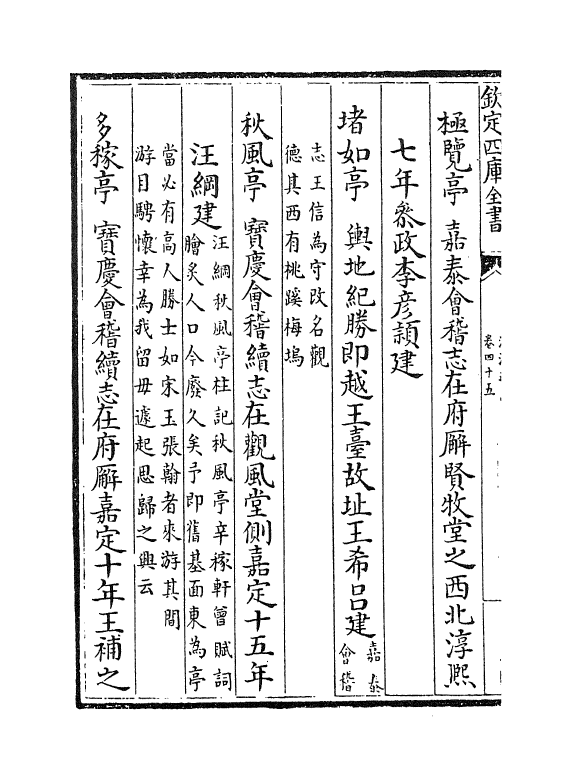 欽定四庫全書
卷四十五
極覽亭 嘉泰會稽志在府廨賢牧堂之西北淳熙
七年叅政李彦頴建
堵如亭 輿地紀勝即越王臺故址王希吕建 嘉泰
會稽
志王信為守改名觀
德其西有桃蹊梅塢
秋風亭 寶慶會稽續志在觀風堂側嘉定十五年
汪綱建 汪綱秋風亭柱記秋風亭辛稼軒曾賦詞
膾炙人口今廢久矣予即舊基面東為亭
當必有高人勝士如宋玉張翰者來游其間
游目騁懷幸為我留毋遽起思歸之興云
多稼亭 寶慶會稽續志在府廨嘉定十年王補之